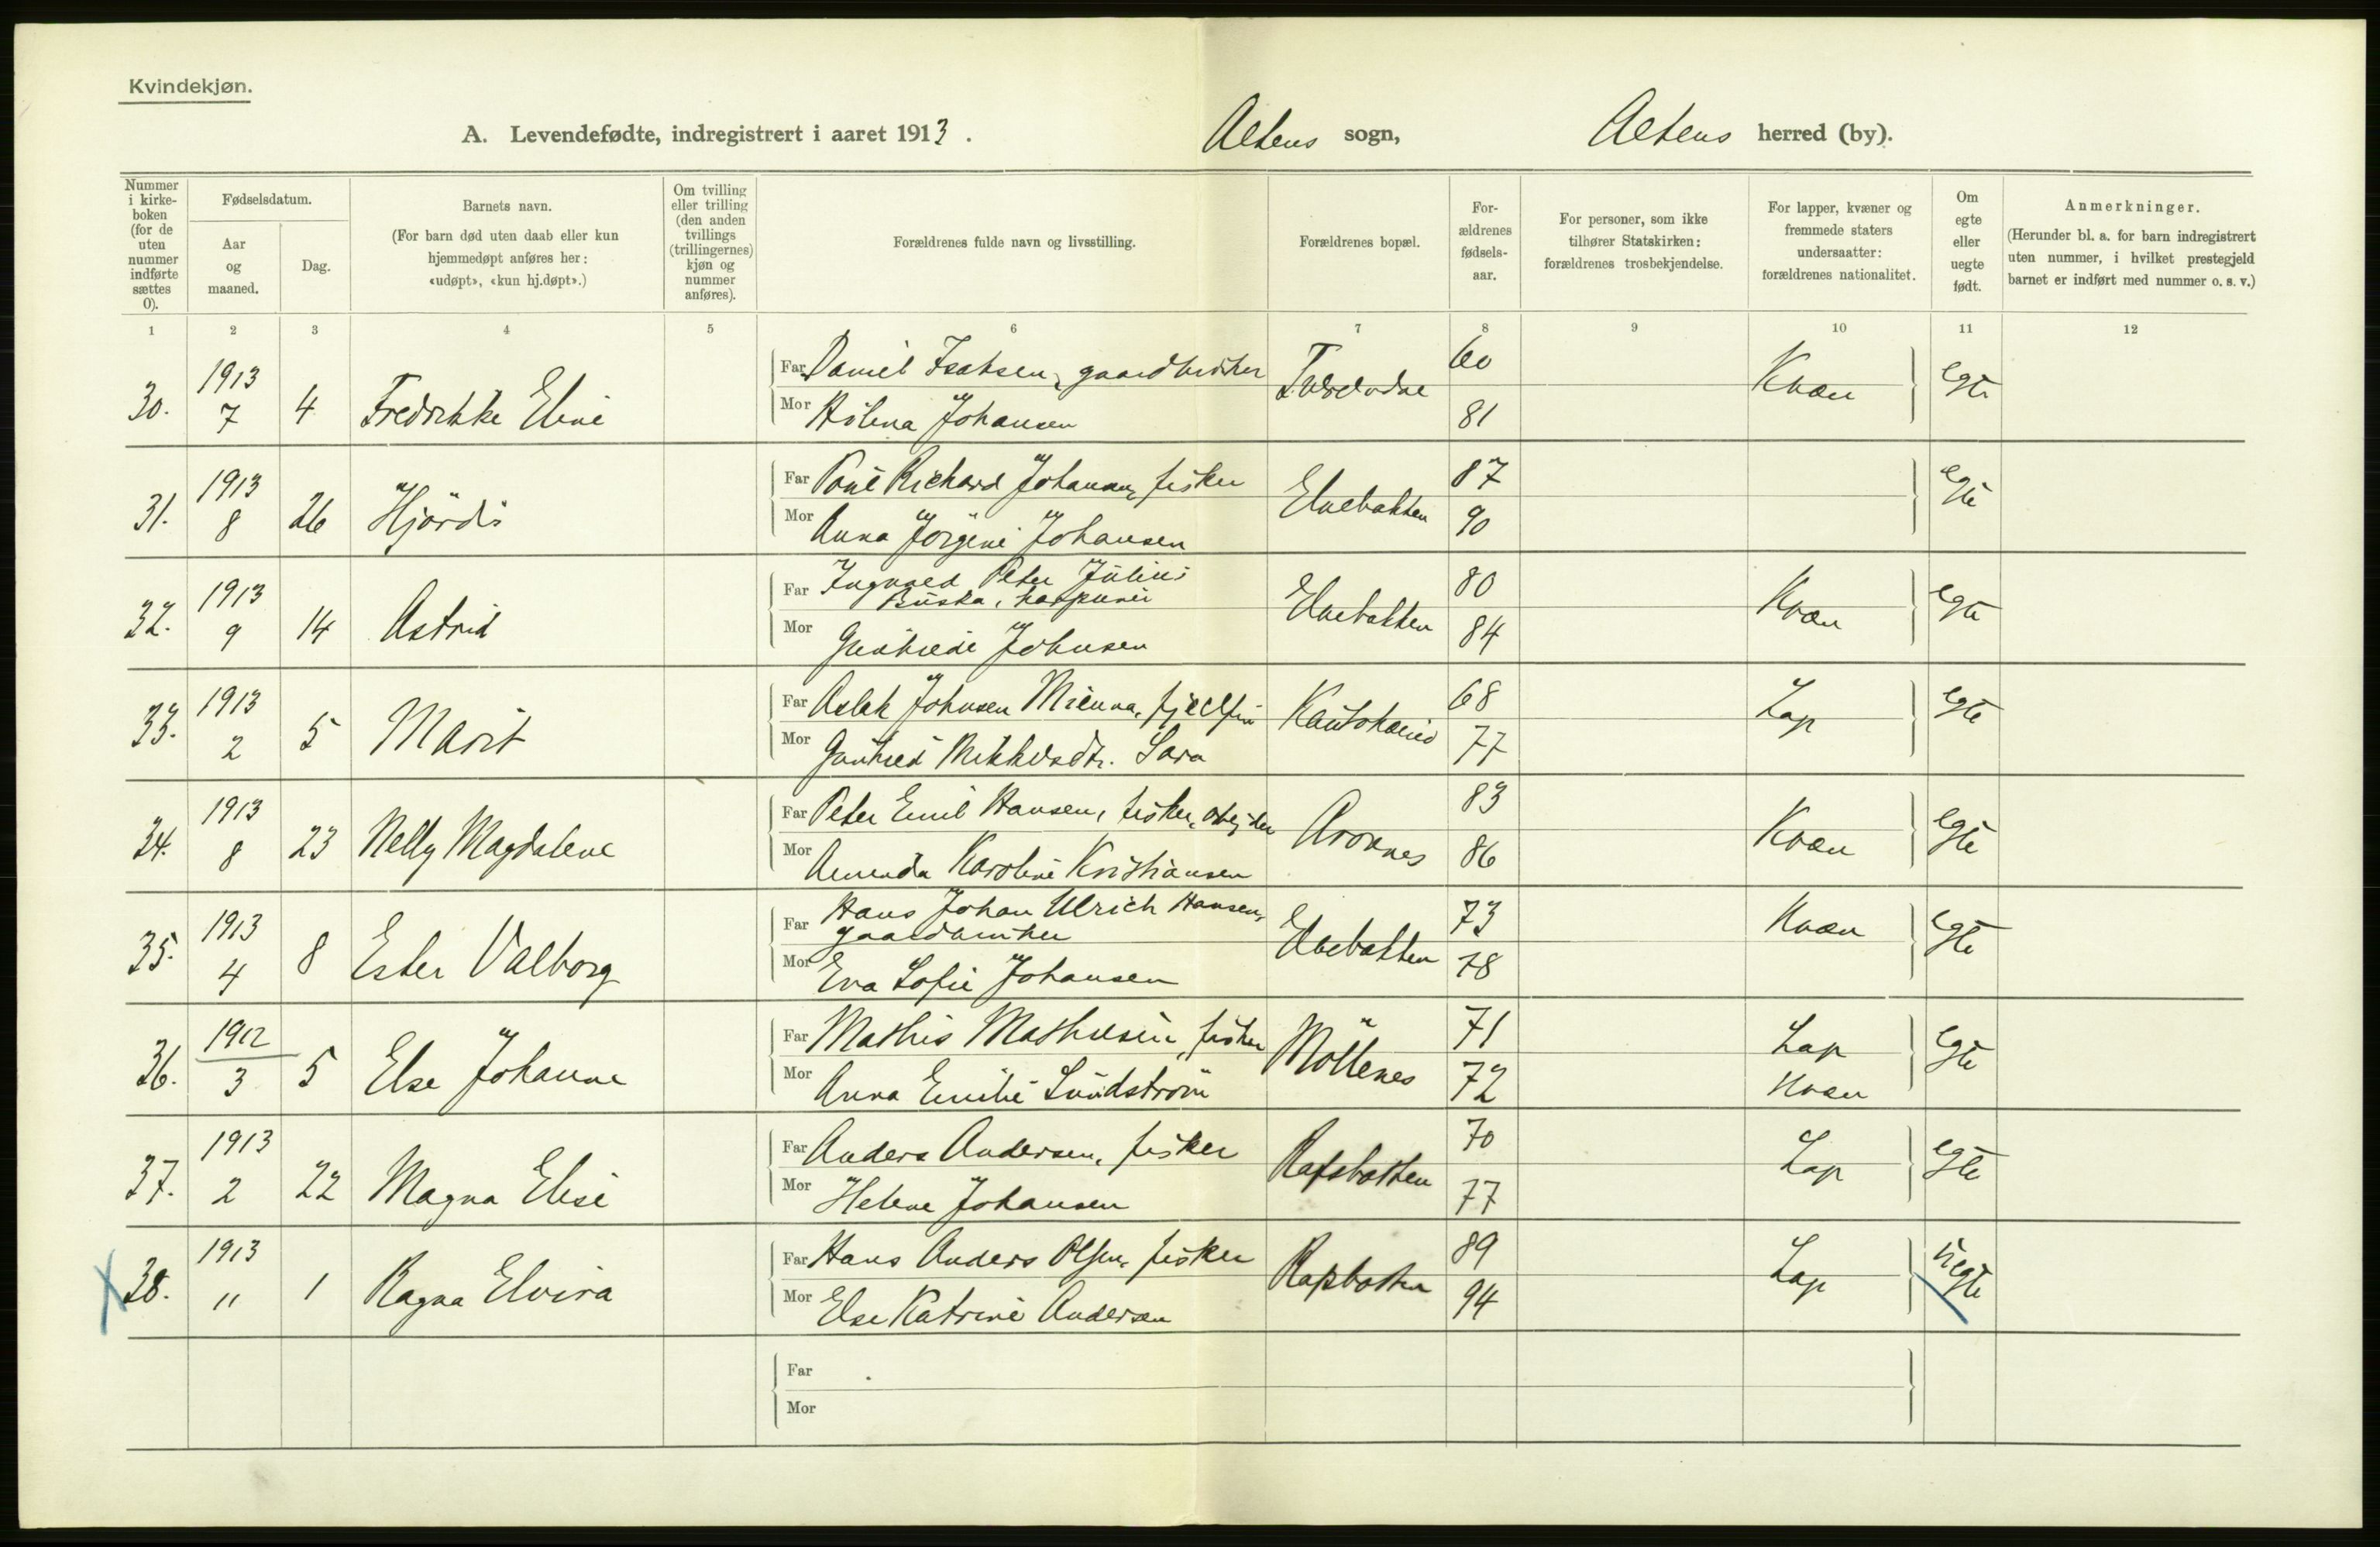 Kvindekjøn.
A. Levendefødte, indregistrert i aaret 1913. Altens sogn, Altens herred (by).
Nummer i kirkeboken (for de uten nummer indførte sættes 0).
Fødselsdatum.
Aar og maaned.
Dag.
Barnets navn.
(For barn død uten daab eller kun hjemmedøpt anføres her: «udøpt», «kun hj.døpt».)
Om tvilling eller trilling (den anden tvillings (trillingernes) kjøn og nummer anføres).
Forældrenes fulde navn og livsstilling.
Forældrenes bopæl.
Forældrenes fødselsaar.
For personer, som ikke tilhører Statskirken: forældrenes trosbekjendelse.
For lapper, kvæner og fremmede staters undersaatter: forældrenes nationalitet.
Om egte eller uegte født.
Anmerkninger.
(Herunder bl. a. for barn indregistrert uten nummer, i hvilket prestegjeld barnet er indført med nummer o. s. v.)
1 2 3 4 5 6 7 8 9 10 11 12
30. 1913 7 4 Fredrikke Eline
Far Daniel Isaksen, gaardbruker 60 Kvæn egte
Mor Helena Johansen 81
31. 1913 8 26 Hjördis
Far Poul Richard Johansen, fisker Elvebakken 87 egte
Mor Anna Jörgine Johansen 90
32. 1913 9 14 Astrid
Far Ingvald Peter Julius Buska, harpuner Elvebakken 80 Kvæn egte
Mor Johnsen 84
33. 1913 2 5 Marit
Far Aslak Johnsen Mienna, fjeldfin Kautokeino 68 Lap egte
Mor Mikkelsdtr. Sara 77
34. 1913 8 23 Nelly Magdalene
Far Peter Emil Hansen, fisker, arbejder Aronnes 83 Kvæn egte
Mor Amanda Karoline Kristiansen 86
35. 1913 4 8 Ester Valborg
Far Hans Johan Ulrich Hansen, gaardbruker Elvebakken 73 Kvæn egte
Mor Eva Sofie Johansen 78
36. 1912 3 5 Else Johanne
Far Mathis Mathisen, fisker Möllenes 71 Lap egte
Mor Anna Emilie Lundström 72 Kvæn
37. 1913 2 22 Magna Elise
Far Anders Andersen, fisker Rafsbotten 70 Lap egte
Mor Helene Johansen 77
38. 1913 " 1 Ragna Elvira
Far Hans Anders Olsen, fisker Rafsbotten 89 Lap uegte
Mor Else Katrine Andersen 94
Far
Mor